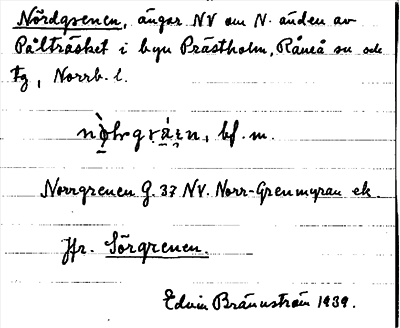 Nördgrenen, ängar NV om N. änden av
Pålträsket i byn Prästholm, Råneå sn och
tg, Norrb. l.
bf. m.
Norrgrenen G. 37 NV. Norr-Grenmyran ek.
Jfr. Sörgrenen.
Edvin Brännström 1939.